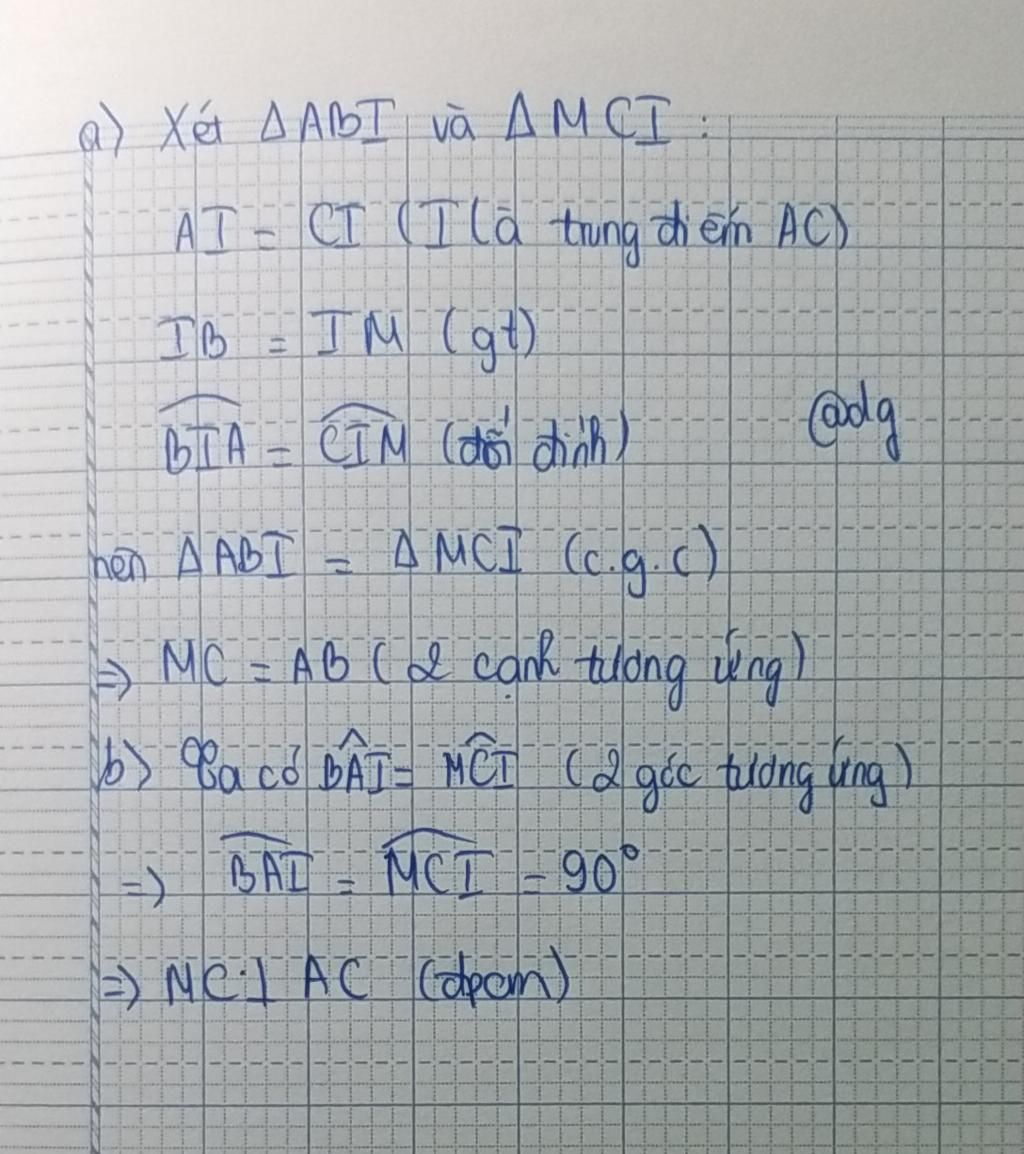 a) Xét ΔABI và ΔMCI :
AI = CI (I là trung điểm AC)
IB = IM (gt)
@dg
BIA = CIM (đối đỉnh)
nên ΔABI = ΔMCI (c.g.c)
=> MC = AB (2 cạnh tương ứng)
b) Ta có BÂI = MĈI (2 góc tương ứng)
=> BAI = MCI = 90°
=> MC ⊥ AC (đpcm)